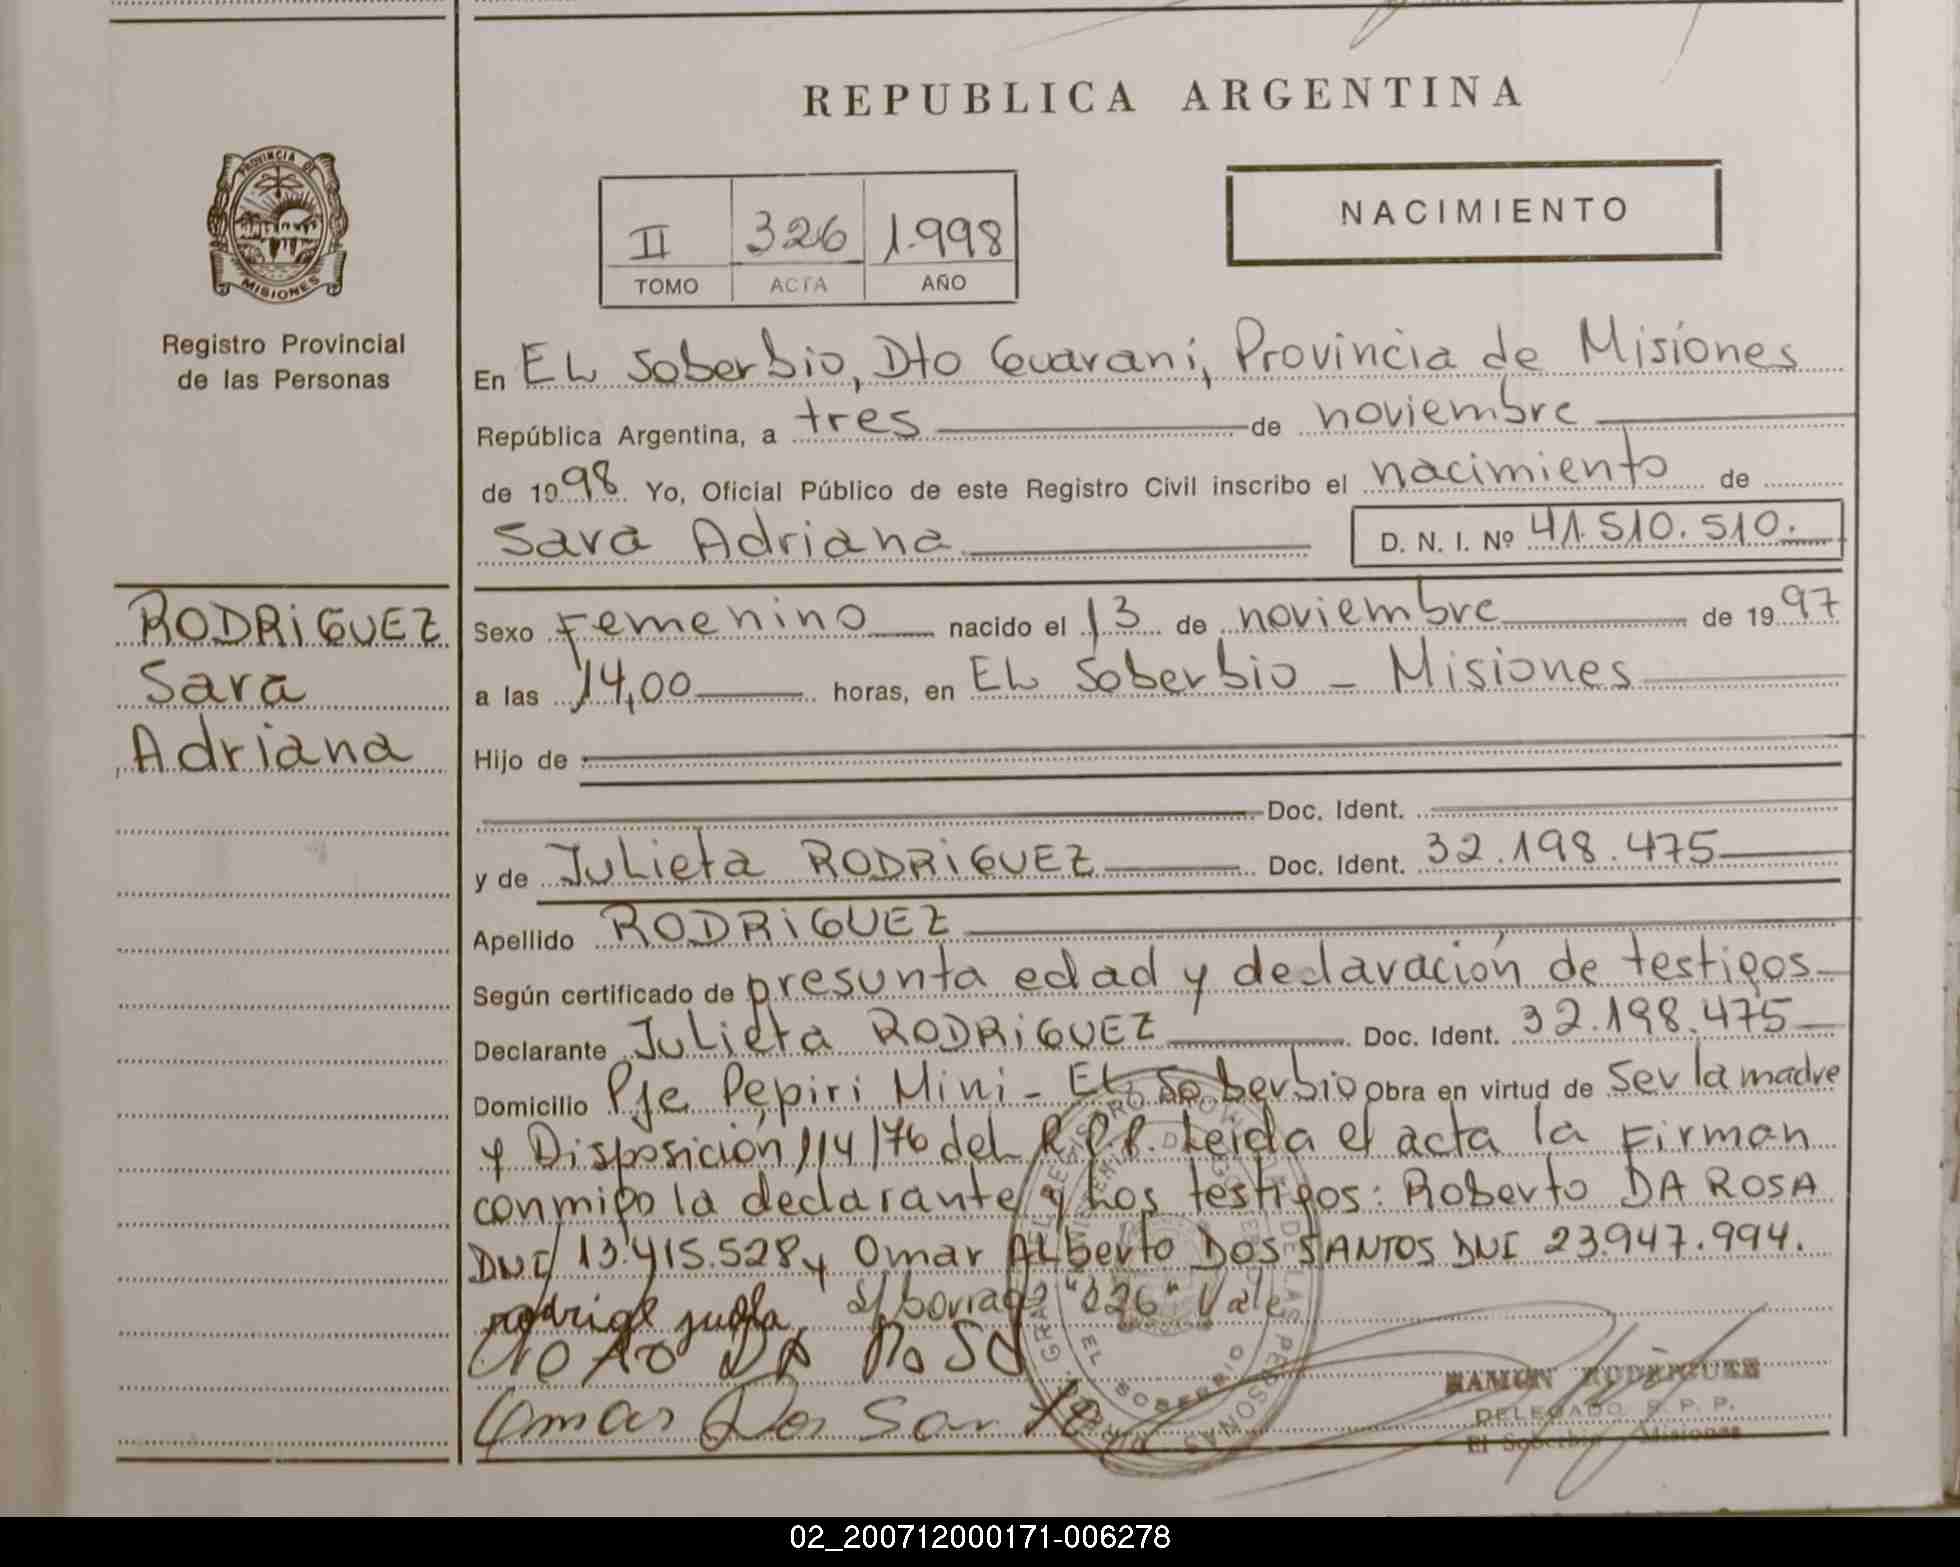 REPUBLICA ARGENTINA
PROVINCIA DE
MISIONES
Registro Provincial
de las Personas
II 326 1.998
TOMO ACTA AÑO
NACIMIENTO
En EL Soberbio, Dto Guaraní, Provincia de Misiones
República Argentina, a tres de noviembre
de 1998 Yo, Oficial Público de este Registro Civil inscribo el nacimiento de
Sara Adriana D. N. I. Nº 41.510.510.
RODRIGUEZ
Sara
Adriana
Sexo Femenino nacido el 13 de noviembre de 1997
a las 14,00 horas, en EL Soberbio - Misiones
Hijo de
Doc. Ident.
y de Julieta RODRIGUEZ Doc. Ident. 32.198.475
Apellido RODRIGUEZ
Según certificado de presunta edad y declaración de testigos
Declarante Julieta RODRIGUEZ Doc. Ident. 32.198.475
Domicilio Pje Pepiri Mini - EL Soberbio Obra en virtud de Ser la madre
y Disposición 114/76 del R.P.P. Leida el acta la Firman
conmigo la declarante y Los testigos: Roberto DA ROSA
DNI 13.415.528 y Omar ALberto DOS SANTOS DNI 23.947.994.
S/borrado "326" Vale
DA ROSA
Omar Dos Santo
EL SOBERBIO
RAMON RODRIGUEZ
DELEGADO R. P. P.
El Soberbio Misiones
02_200712000171-006278